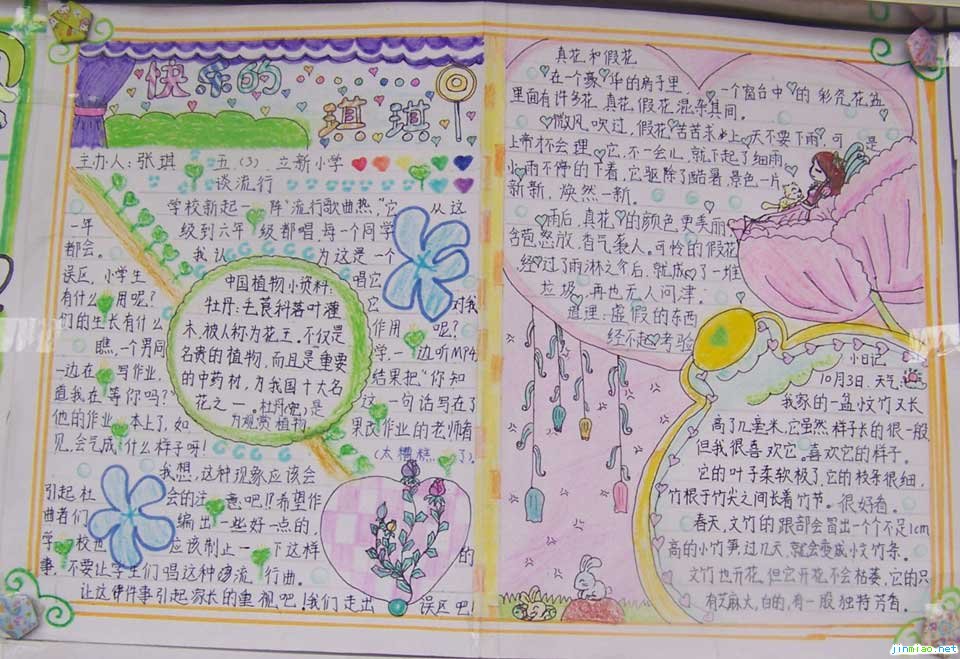 快乐的
琪琪
主办人:张琪 五(3) 立新小学
谈流行
学校新起一阵"流行歌曲热",它从这
一年级到六年级都唱,每一个同学
都会。我认为这是一个
误区,小学生唱它
有什么用呢?它对我
们的生长有什么作用呢?
瞧,一个男同学,一边听MP4
一边在写作业,结果把"你知
道我在等你吗?这一句话写在了
他的作业本上了,如果改作业的老师看
见,会气成什么样子呀!(太糟糕了)。
我想,这种现象应该会
引起社会的注意吧!!希望作
曲者们编出一些好一点的,
学校也应该制止一下这样的
事,不要让学生们唱这种流行曲。
让这件事引起家长的重视吧!我们走出误区吧!
中国植物小资料:
牡丹:毛茛科落叶灌
木,被人称为花王,不仅是
名贵的植物,而且是重要
的中药材,为我国十大名
花之一。牡丹(它)是
为观赏植物
真花和假花
在一个豪华的房子里,一个窗台中的彩瓷花盆
里面有许多花,真花,假花混杂其间。
微风吹过,假花苦苦求上天不要下雨,可是
上帝不会理它,不一会儿,就下起了细雨
小雨不停的下着,它驱除了酷暑,景色一片
新新,焕然一新。
雨后,真花的颜色更美丽
含苞怒放,香气袭人。可怜的假花
经过了雨淋之后,就成了一堆
垃圾,再也无人问津。
道理:虚假的东西
经不起考验
小日记
10月3日,天气:
我家的一盆文竹又长
高了几厘米,它虽然样子长的很一般,
但我很喜欢它。喜欢它的样子。
它的叶子柔软极了,它的枝条很细,
竹根于竹尖之间长着竹节。很好看。
春天,文竹的跟部会冒出一个个不足1cm
高的小竹笋过几天,就会变成小文竹条。
文竹也开花,但它开花,不会枯萎,它的只
有芝麻大,白的,有一股独特芳香。
jinmiao.net